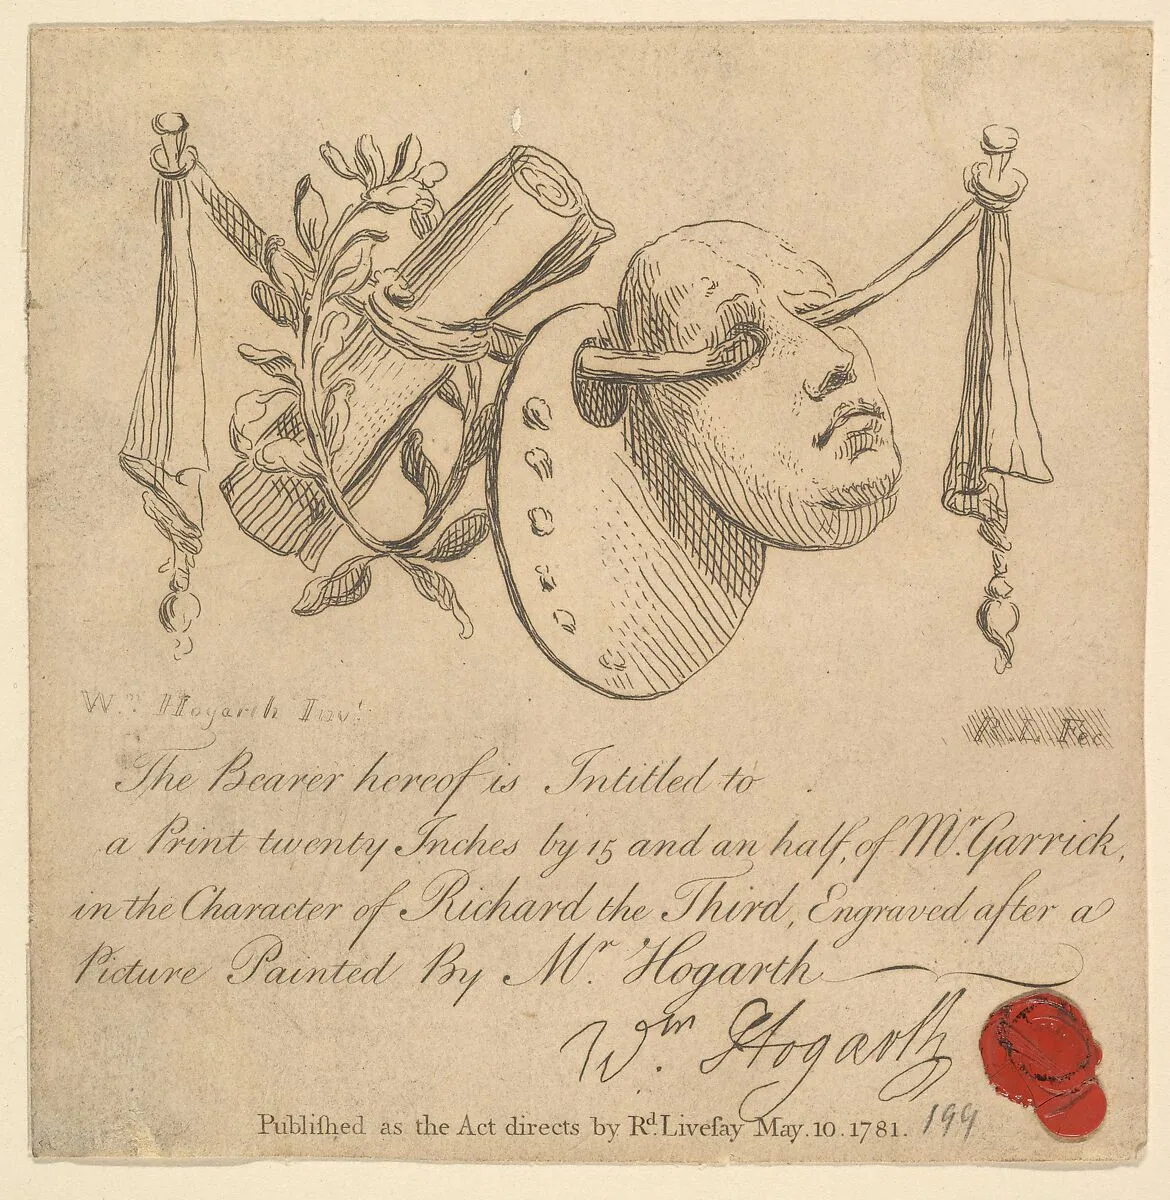 Wm Hogarth Invt
R. L. Fec
The Bearer hereof is Intitled to
a Print twenty Inches by 15 and an half, of Mr. Garrick,
in the Character of Richard the Third, Engraved after a
Picture Painted By Mr. Hogarth
Wm. Hogarth
Publiſhed as the Act directs by Rd. Liveſay May. 10. 1781.
199